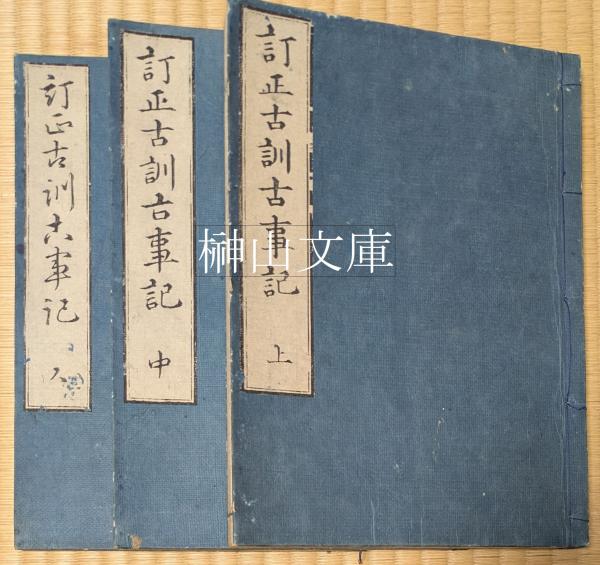 訂正古訓古事記 上
訂正古訓古事記 中
訂正古訓古事記
榊山文庫